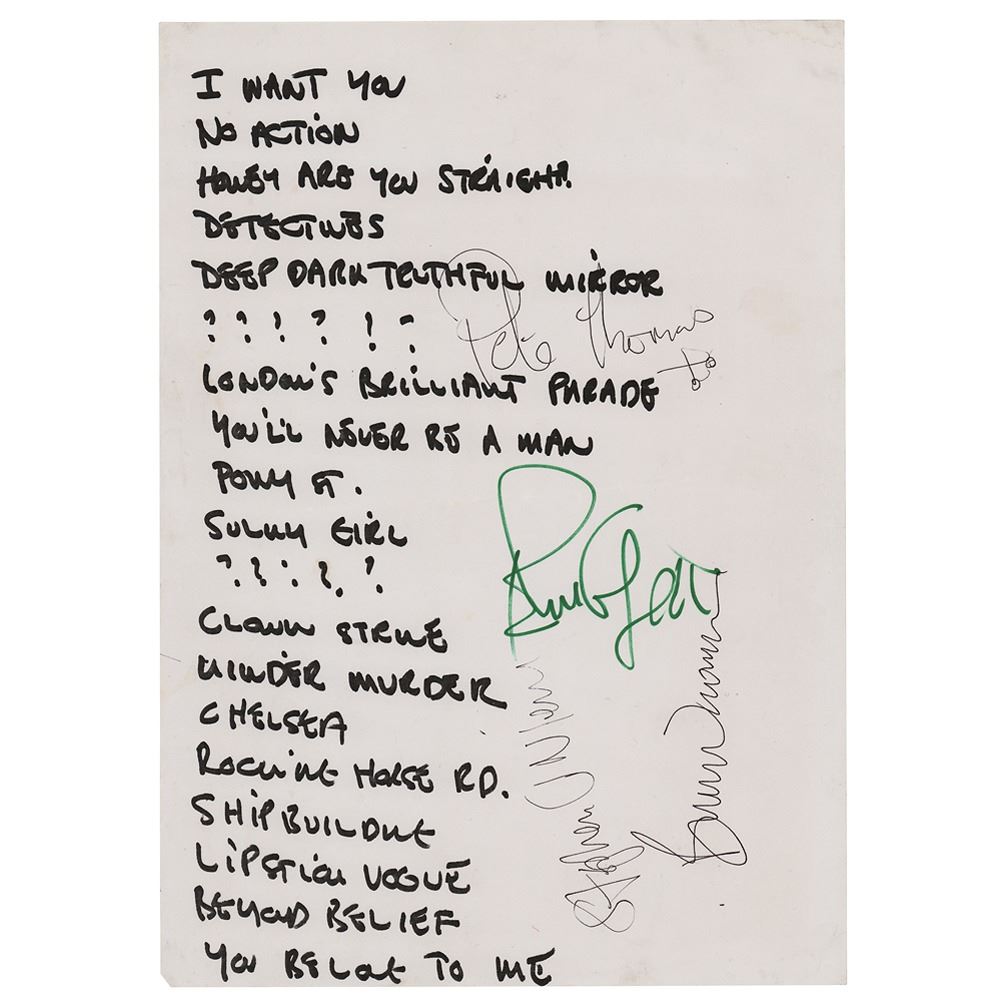 I WANT YOU
NO ACTION
HONEY ARE YOU STRAIGHT?
DETECTIVES
DEEP DARK TRUTHFUL MIRROR
? ? ! ? ! ?
Pete Thomas
LONDON'S BRILLIANT PARADE
YOU'LL NEVER BE A MAN
PONY ST.
SULKY GIRL
? ? : ? ?
CLOWN STRIKE
KINDER MURDER
CHELSEA
ROCKING HORSE RD.
SHIPBUILDING
LIPSTICK VOGUE
BEYOND BELIEF
YOU BELONG TO ME